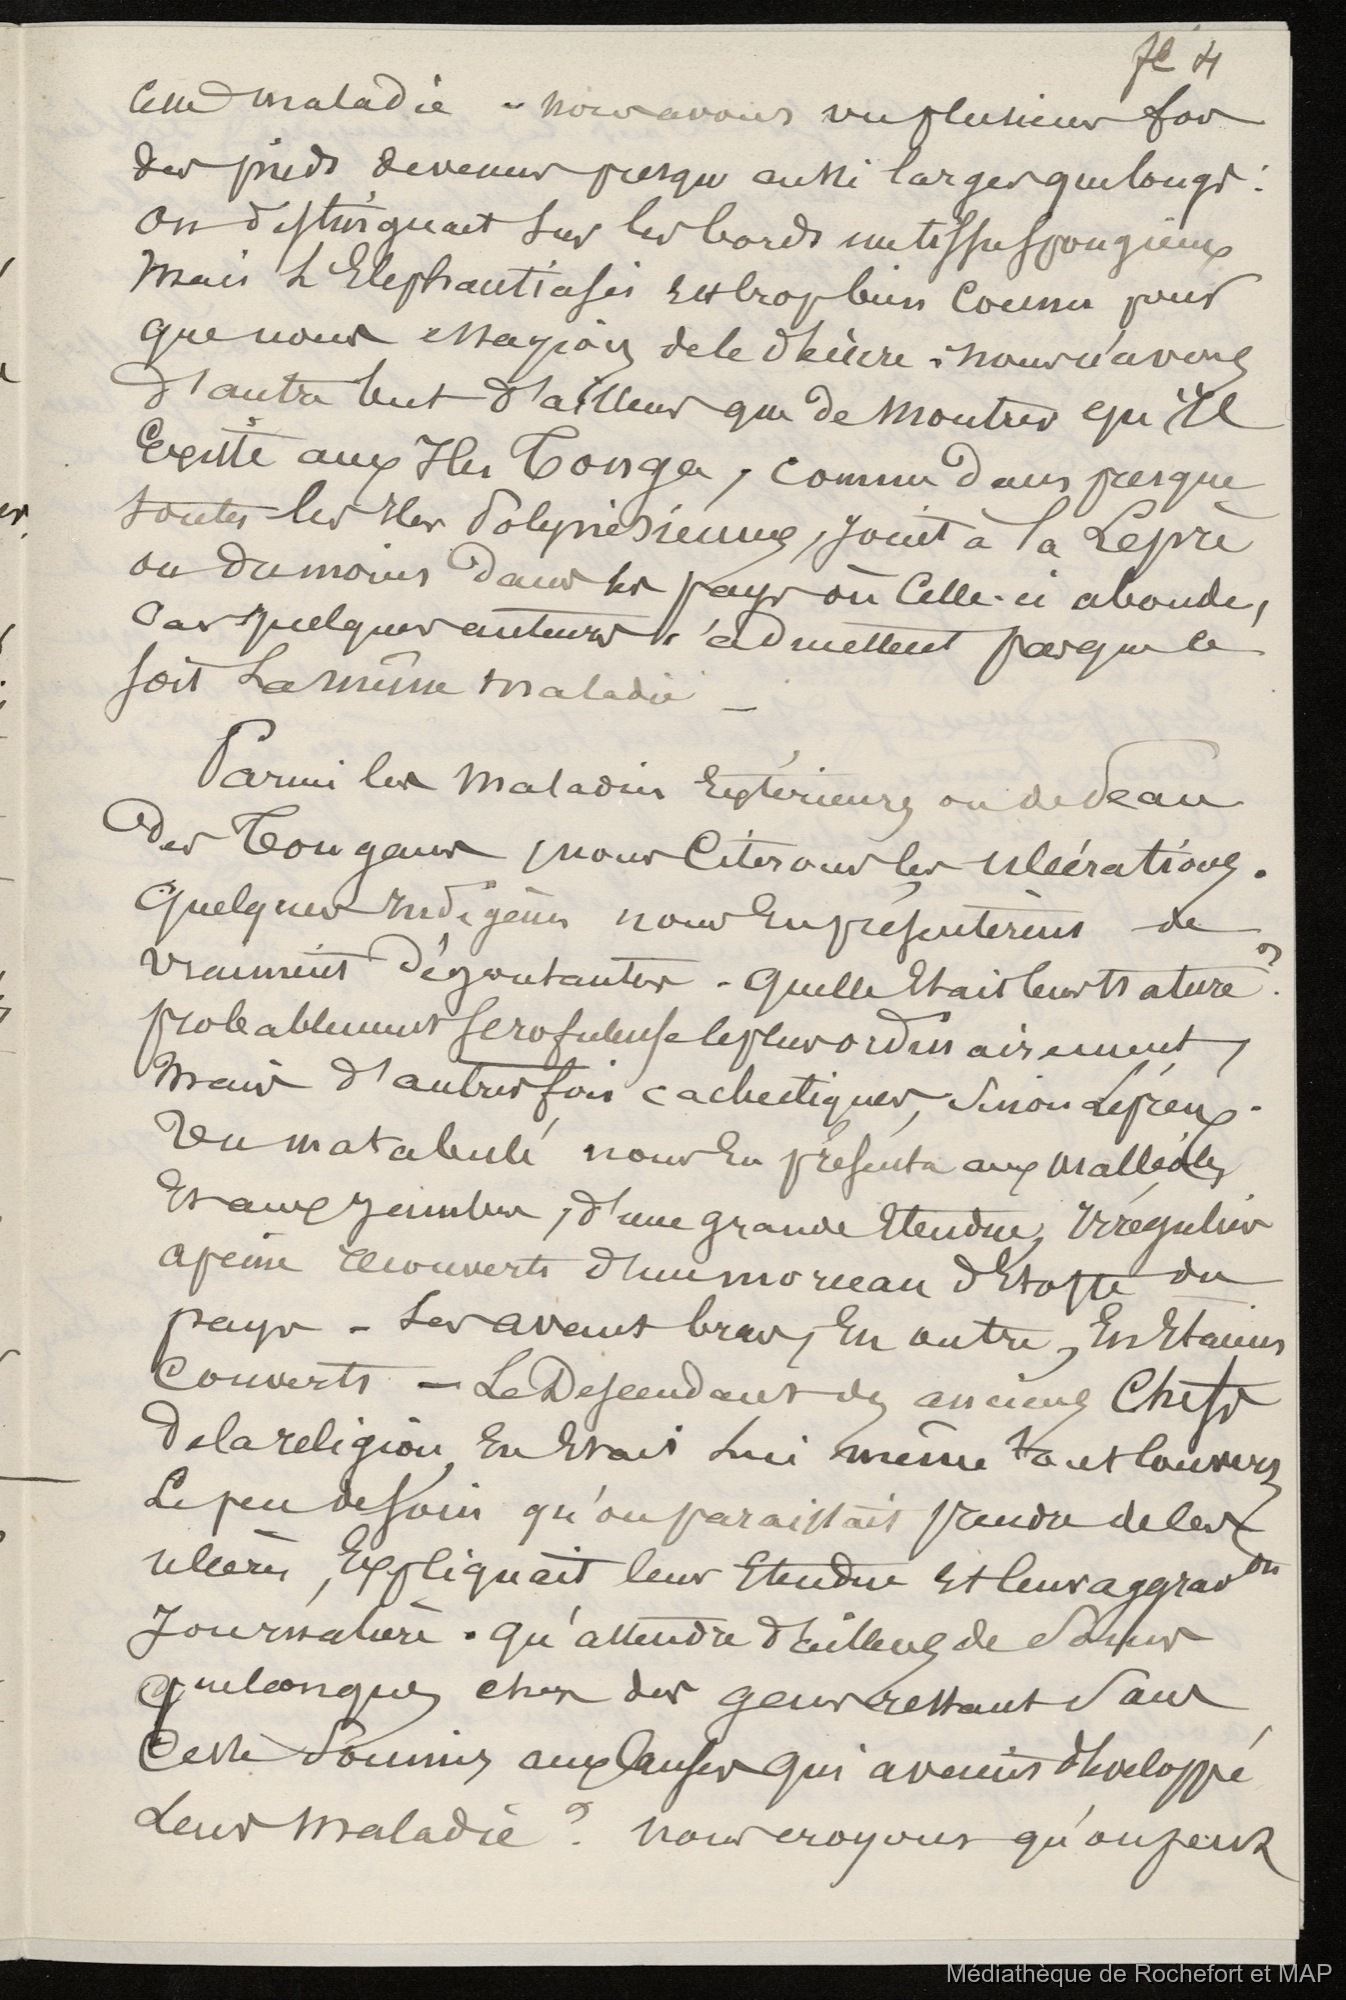 fe 4
Cette maladie - nous avons vu plusieurs fois
des pieds devenus presque aussi larges que longs :
On distinguait sur les bords un tissu spongieux
Mais L'Elephantiasis est trop bien connu pour
que nous essayions de le décrire . nous n'avons
d'autre but d'ailleurs que de montrer qu'il
Existe aux Iles Tonga , comme dans presque
toutes les Iles Polynésiennes, joint à la Lèpre
ou du moins dans les pays où Celle-ci abonde,
Car quelques auteurs n'admettent pas que ce
soit La même maladie _
Parmi les Maladies Extérieures ou de Peau
Des Tongans , nous Citerons les ulcérations .
Quelques Indigènes nous En présentèrent de
vraiment dégoutantes - quelle Etait leur nature ?
probablement scrofuleuse le plus ordinairement ,
Mais d'autres fois cachectiques, Sinon Lépreux .
Un matabulé nous En présenta aux malléoles
Et aux jambes , d'une grande Etendue, irrégulier
a peine recouverts d'un morceau d'Etoffe du
pays - Les avant bras, En outre, En Etaient
Couverts - Le Descendant des anciens Chefs
de la religion, En Etait Lui même tout couvert
Le peu de soin qu'on paraissait prendre de ces
ulcères , Expliquait leur Etendue et leur aggravon
Journalière . qu'attendre d'ailleurs de Soins
quelconques chez des gens restant Sans
Cesse Soumis aux Causes qui avaient développé
Leur Maladie ? nous croyons qu'on peut
Médiathèque de Rochefort et MAP